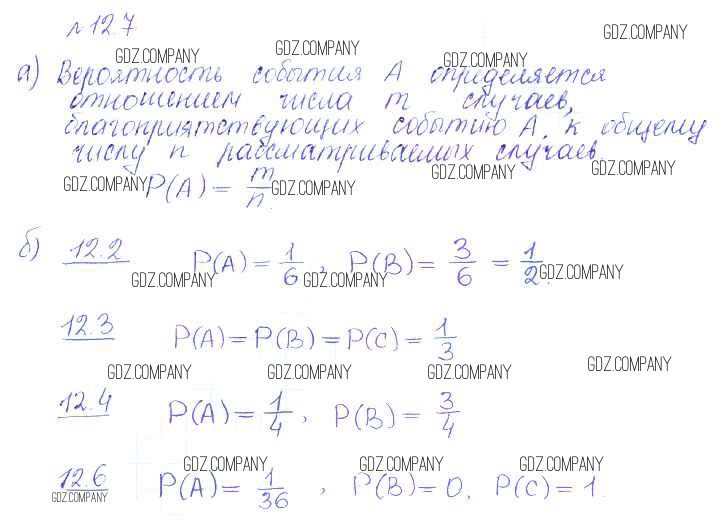 № 12.7
GDZ.COMPANY GDZ.COMPANY GDZ.COMPANY GDZ.COMPANY
а) Вероятность события А определяется
отношением числа m случаев,
благоприятствующих событию А, к общему
числу n рассматриваемых случаев
GDZ.COMPANY GDZ.COMPANY GDZ.COMPANY GDZ.COMPANY
P(A) = m/n.
б) 12.2 P(A) = 1/6, P(B) = 3/6 = 1/2.
GDZ.COMPANY GDZ.COMPANY GDZ.COMPANY
12.3 P(A) = P(B) = P(C) = 1/3
GDZ.COMPANY GDZ.COMPANY GDZ.COMPANY GDZ.COMPANY
12.4 P(A) = 1/4, P(B) = 3/4
GDZ.COMPANY GDZ.COMPANY GDZ.COMPANY
12.6 P(A) = 1/36, P(B) = 0, P(C) = 1.
GDZ.COMPANY